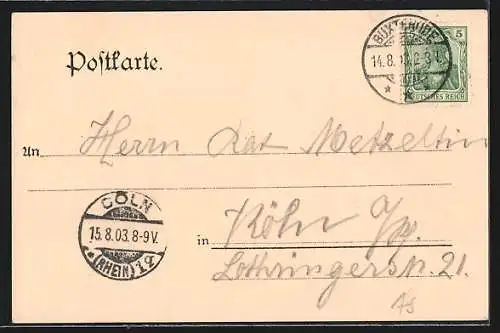 BUXTEHUDE
14.8.03.2-3N.
5
DEUTSCHES REICH
Postkarte.
An Herrn Rat Metzeltin
CÖLN
15.8.03.8-9V.
* (RHEIN) 12
in Köln a/Rh.
Lothringerst. 21.